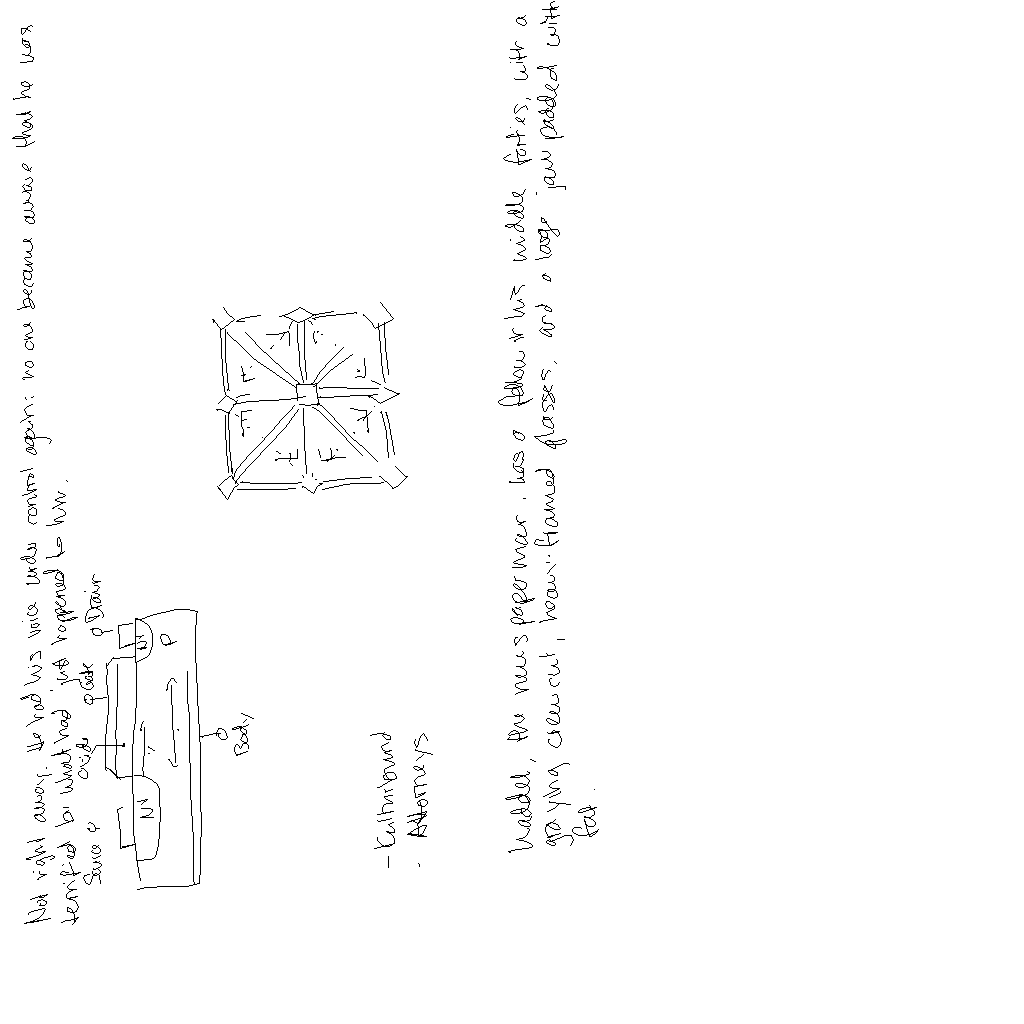 Not right away. He had his voice under control again: no one became aware that he was
terrified by what had just happened to him.
Source
Oxide
Gate
Drain
N+
N+
P
Body
- Kulturbund
. Attorneys
Waddel, the newspaperman, was a fellow in his middle forties, with a
graying crewcut, heavy-framed glasses, and a large jaw padded with
fat.